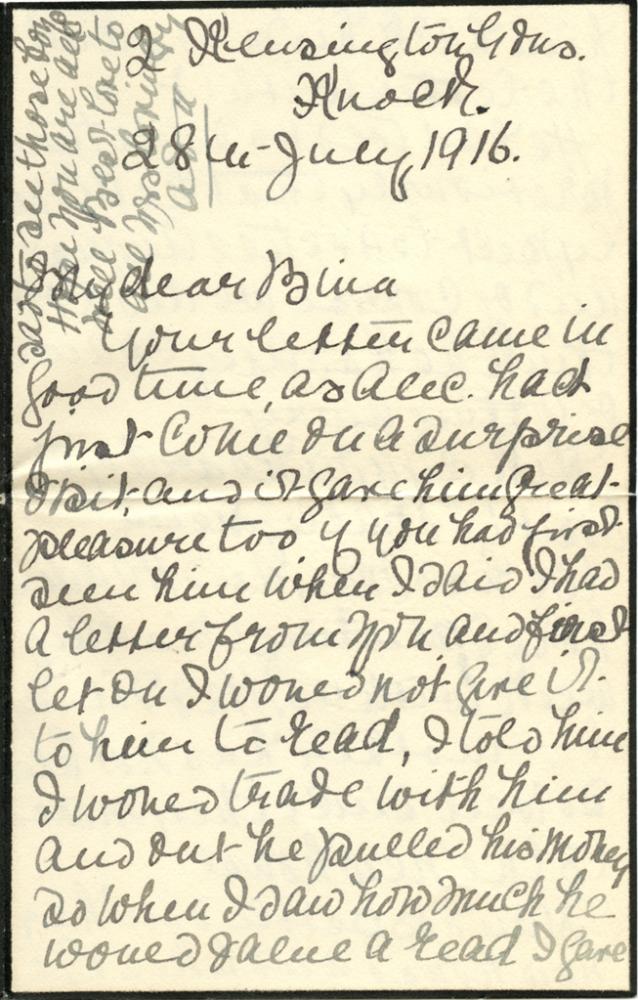 2 Kensington Gdns.
Knock.
28th July 1916.
My dear Bina
Your letter came in
good time, as Alec. had
just come on a surprise
visit, and it gave him great
pleasure too if you had just
seen him when I said I had
a letter from you and first
let on I would not give it
to him to read, I told him
I would trade with him
and out he pulled his money
so when I saw how much he
would value a read I gave
see those
Hope you are all
well Best love to
all